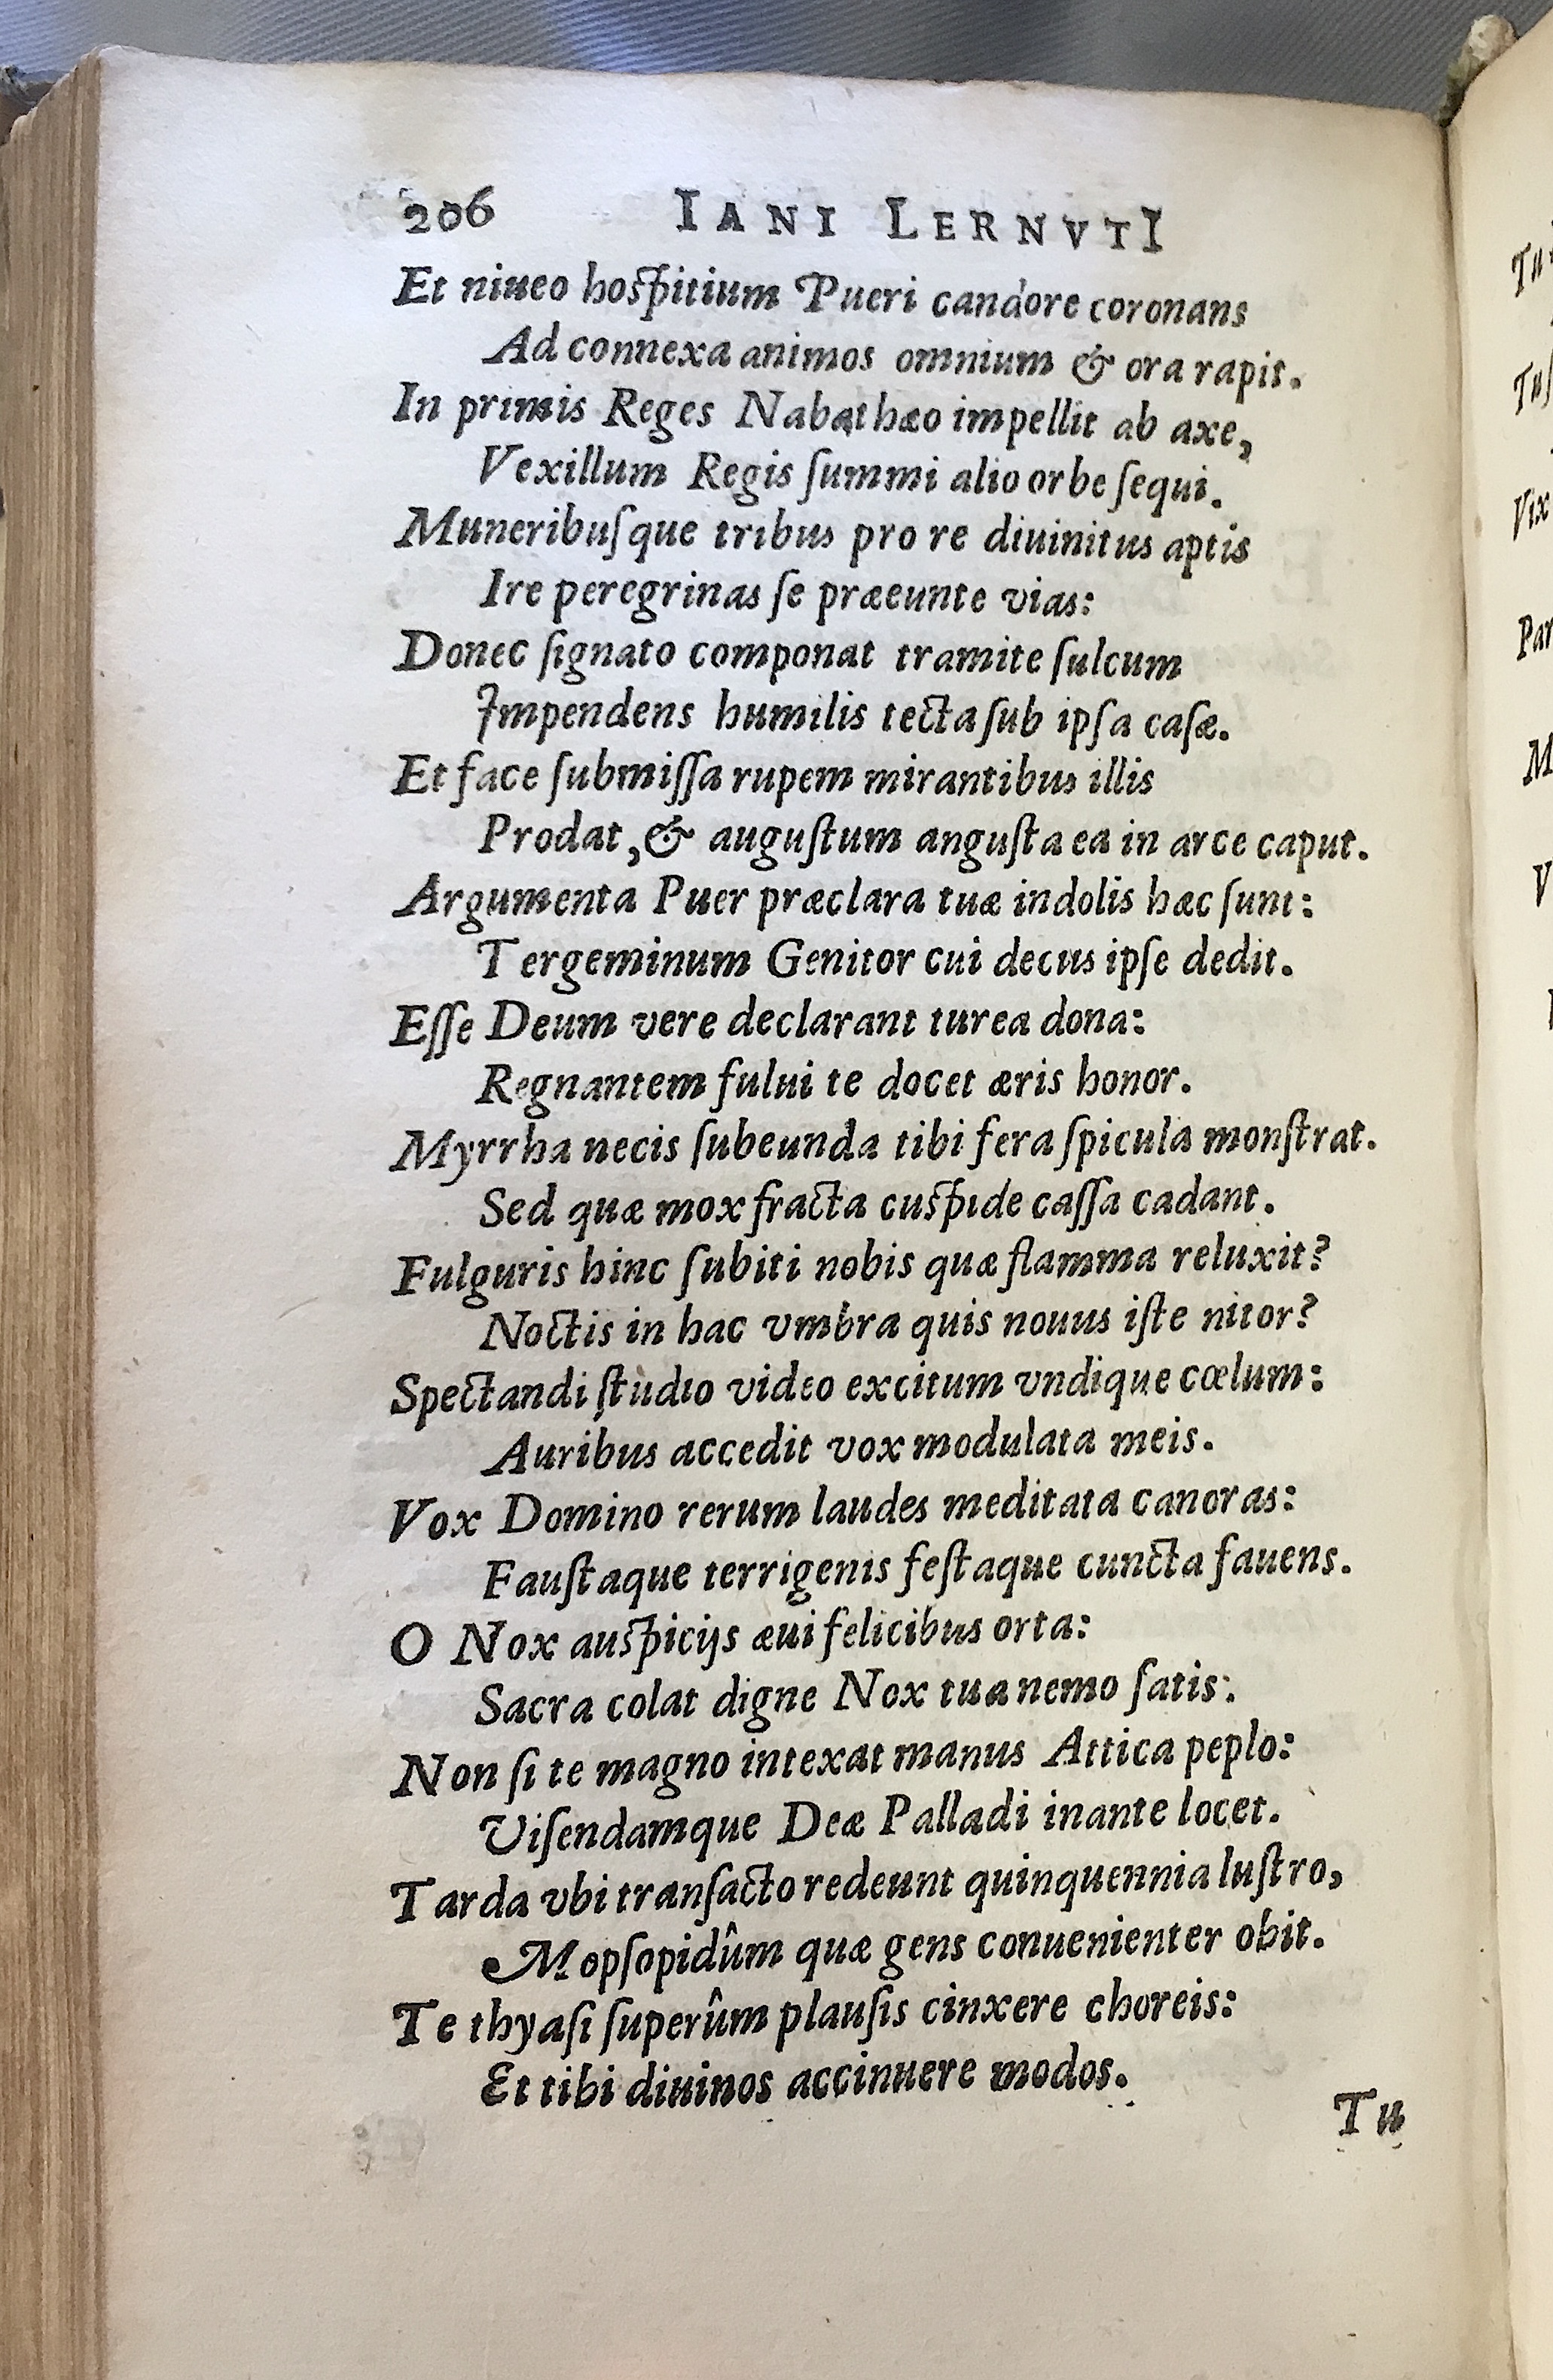 206 IANI LERNVTI
Et niueo hoſpitium Pueri candore coronans
Ad connexa animos omnium & ora rapit.
In primis Reges Nabathæo impellit ab axe,
Vexillum Regis ſummi alio orbe ſequi.
Muneribuſque tribus pro re diuinitus aptis
Ire peregrinas ſe præeunte vias:
Donec ſignato componat tramite ſulcum
Impendens humilis tecta ſub ipſa caſæ.
Et face ſubmiſſa rupem mirantibus illis
Prodat, & auguſtum anguſta ea in arce caput.
Argumenta Puer præclara tuæ indolis hæc ſunt:
Tergeminum Genitor cui decus ipſe dedit.
Eſſe Deum vere declarant turea dona:
Regnantem fului te docet æris honor.
Myrrha necis ſubeunda tibi fera ſpicula monſtrat.
Sed quæ mox fracta cuſpide caſſa cadant.
Fulguris hinc ſubiti nobis quæ flamma reluxit?
Noctis in hac vmbra quis nouus iſte nitor?
Spectandi ſtudio video excitum vndique cœlum:
Auribus accedit vox modulata meis.
Vox Domino rerum laudes meditata canoras:
Fauſtaque terrigenis feſtaque cuncta fauens.
O Nox auſpicijs æui felicibus orta:
Sacra colat digne Nox tua nemo ſatis.
Non ſi te magno intexat manus Attica peplo:
Viſendamque Deæ Palladi inante locet.
Tarda vbi tranſacto redeunt quinquennia luſtro,
Mopſopidûm quæ gens conuenienter obit.
Te thyaſi ſuperûm plauſis cinxere choreis:
Et tibi diuinos accinuere modos.
Tu